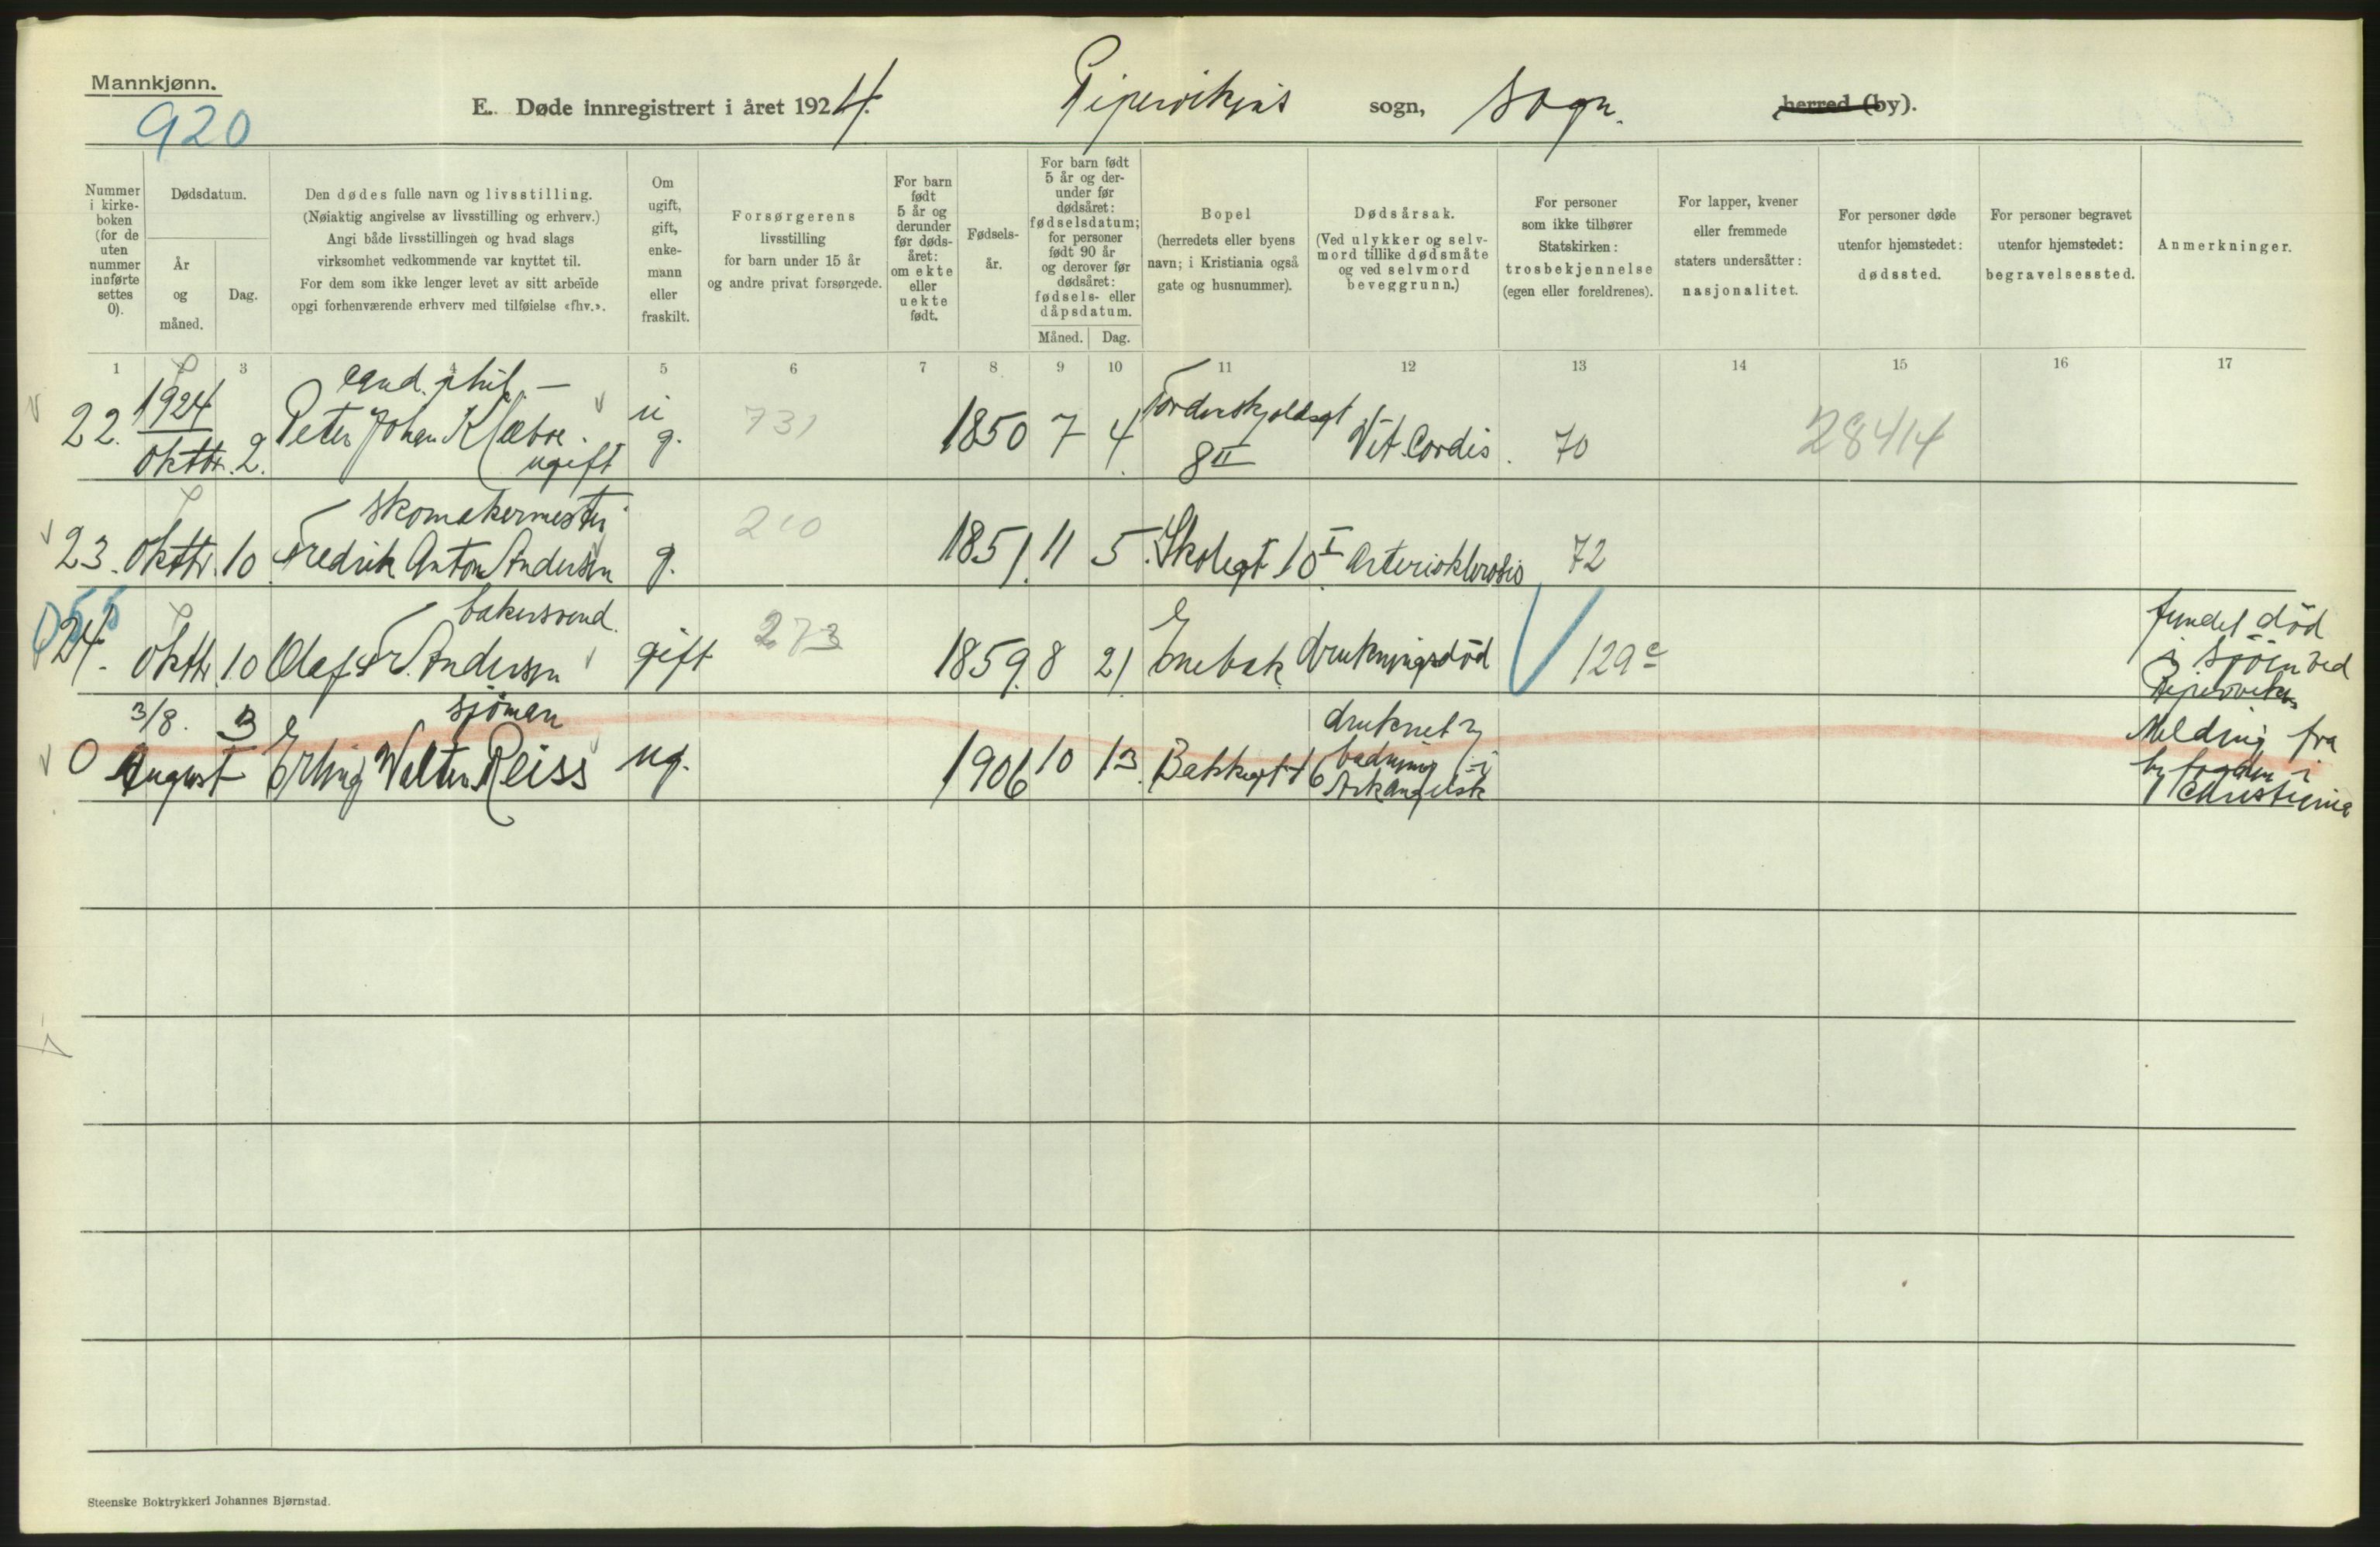 Mannkjønn.
920
E. Døde innregistrert i året 1924. Pipervikens sogn, sogn. herred (by).
Nummer i kirke-boken (for de uten nummer innførte settes 0).
Dødsdatum.
År og måned.
Dag.
Den dødes fulle navn og livsstilling.
(Nøiaktig angivelse av livsstilling og erhverv.)
Angi både livsstillingen og hvad slags
virksomhet vedkommende var knyttet til.
For dem som ikke lenger levet av sitt arbeide
opgi forhenværende erhverv med tilføielse «fhv.».
Om ugift, gift, enke-mann eller fraskilt.
Forsørgerens
livsstilling
for barn under 15 år
og andre privat forsørgede.
For barn født 5 år og derunder før døds-året: om ekte eller uekte født.
Fødsels-år.
For barn født 5 år og der-under før dødsåret: fødselsdatum; for personer født 90 år og derover før dødsåret: fødsels- eller dåpsdatum.
Måned. Dag.
Bopel
(herredets eller byens
navn; i Kristiania også
gate og husnummer).
Dødsårsak.
(Ved ulykker og selv-
mord tillike dødsmåte
og ved selvmord
beveggrunn.)
For personer
som ikke tilhører
Statskirken:
trosbekjennelse
(egen eller foreldrenes).
For lapper, kvener
eller fremmede
staters undersåtter:
nasjonalitet.
For personer døde
utenfor hjemstedet:
dødssted.
For personer begravet
utenfor hjemstedet:
begravelsessted.
Anmerkninger.
1 3 4 5 6 7 8 9 10 11 12 13 14 15 16 17
cand. phil. –
22. 1924 oktbr. 2. Peter Johan Klæboe. ugift u g. 731 1850 7 4. Tordenskjoldsgt 8 II Vit. Cordis. 70 28414
skomakermester
23. oktbr. 10 Fredrik Anton Andersen g. 210 1851. 11 5. Skolegt 10 I Arteriosklerosis 72
bakersvend.
24. oktbr. 10 Olaf Fr. Andersen gift 273 1859. 8 21. Enebak drukningsdød 129c fundet død i sjøen ved Piperviken
sjöman
0 3/8. 3 August Erling Walter Reiss ug. 1906 10 13. Bakkegt 16 druknet v badning i Arkangelsk Melding fra byfogden i Christiania
Steenske Boktrykkeri Johannes Bjørnstad.